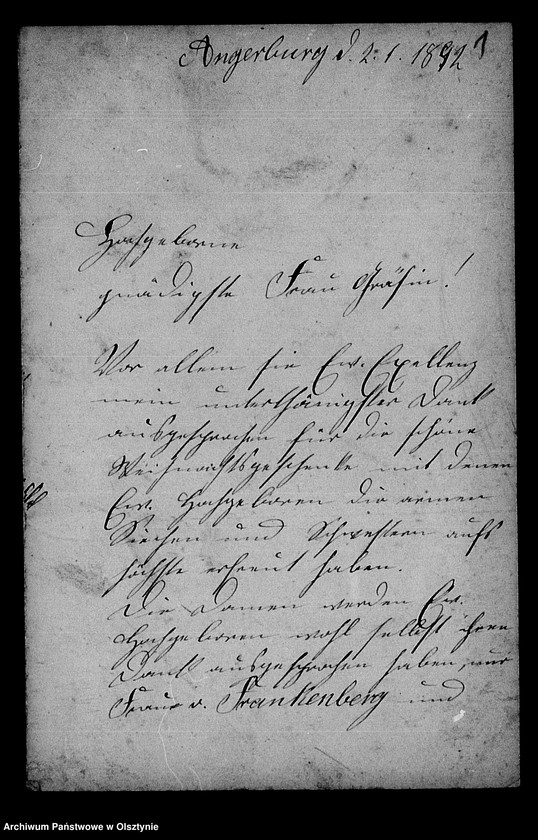 Angerburg d. 2. 1. 1892
1
Hochgeborne
gnädigste Frau Gräfin!
Vor allem sei Ew. Exellenz
mein unterthänigster Dank
ausgesprochen für die schöne
Weihnachtsgeschenke mit denen
Ew. Hochgeboren die armen
Siechen und Schwestern aufs
höchste erfreut haben.
Die Damen werden Ew.
Hochgeboren wohl selbst ihren
Dank ausgesprochen haben, nur
Frau v. Frankenberg und
Archiwum Państwowe w Olsztynie